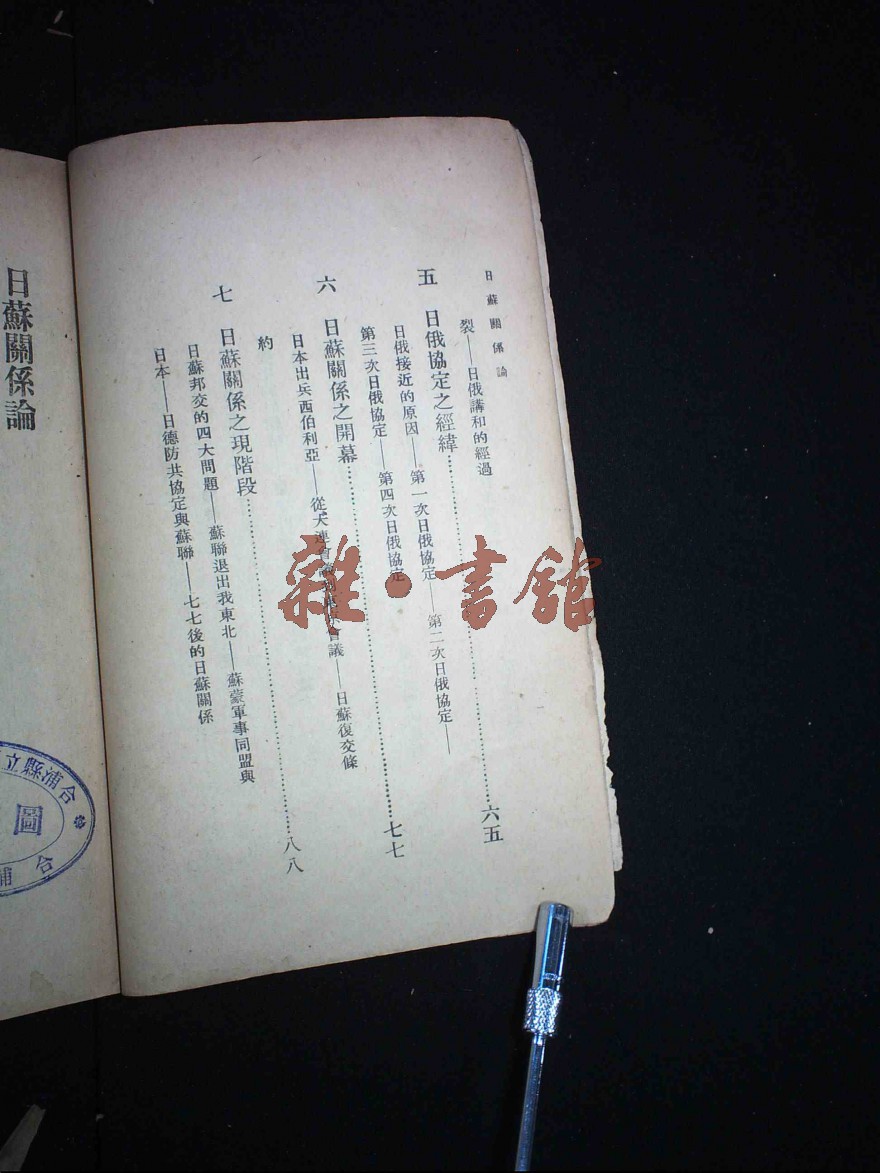 日蘇關係論
裂——日俄講和的經過
五 日俄協定之經緯……六五
日俄接近的原因——第一次日俄協定——第二次日俄協定——
第三次日俄協定——第四次日俄協定
六 日蘇關係之開幕……七七
日本出兵西伯利亞——從大連會議 會議——日蘇復交條
約
七 日蘇關係之現階段……八八
日蘇邦交的四大問題——蘇聯退出我東北——蘇蒙軍事同盟與
日本——日德防共協定與蘇聯——七七後的日蘇關係
日蘇關係論
合浦縣立
圖
合浦
雜·書館